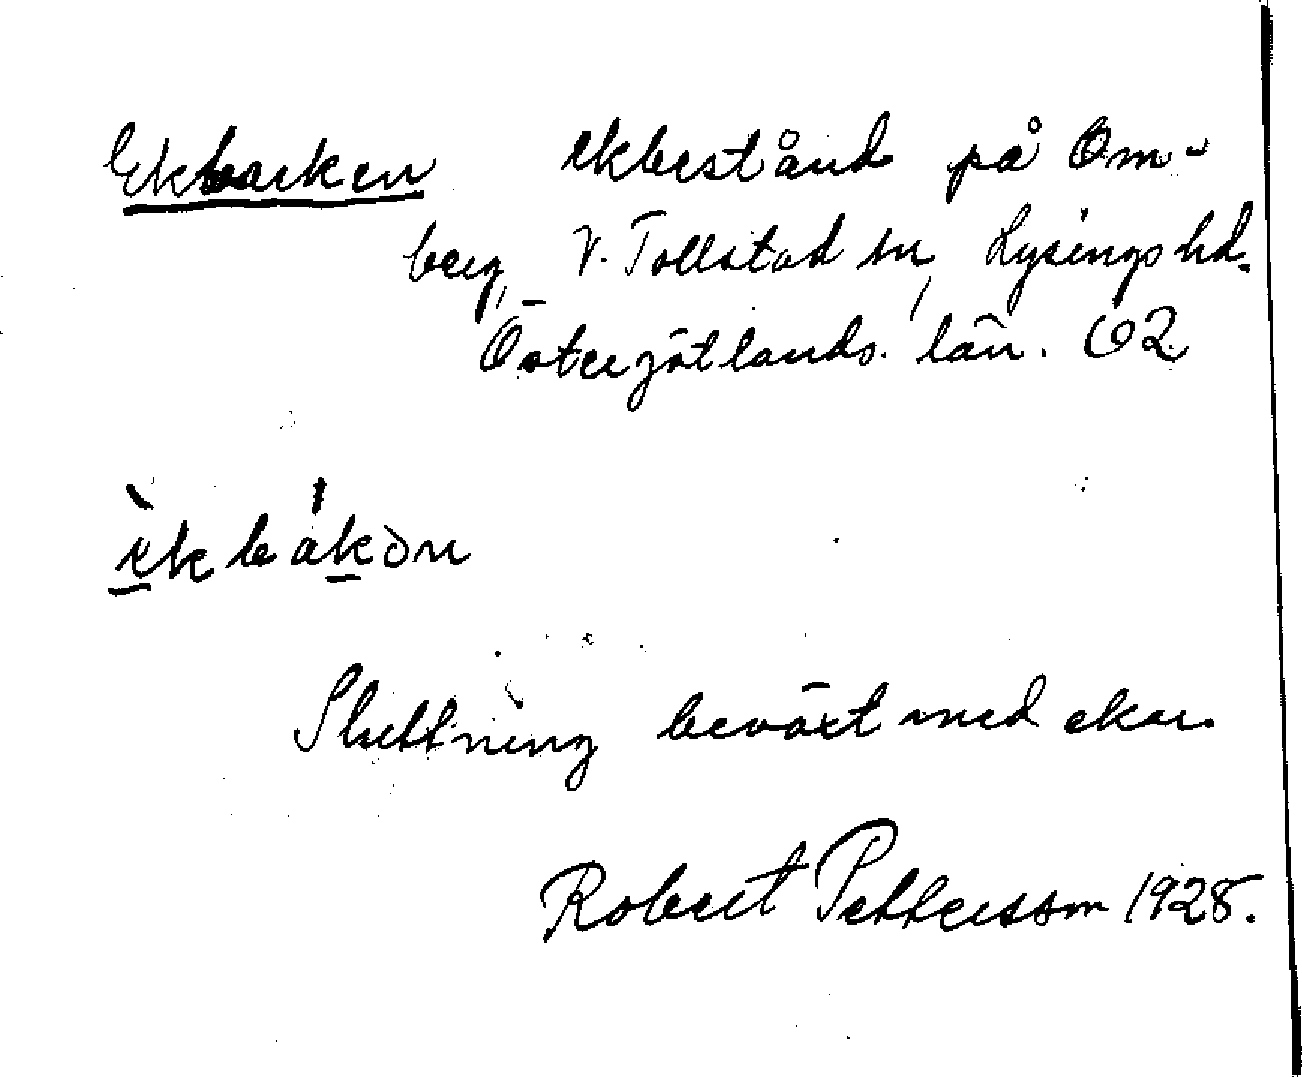 Ekbacken ekbestånd på Om-
berg, V. Tollstad sn, Lysings hd.
Östergötlands. län. Ö2
èk bákən
Sluttning beväxt med ekar.
Robert Pettersson 1928.